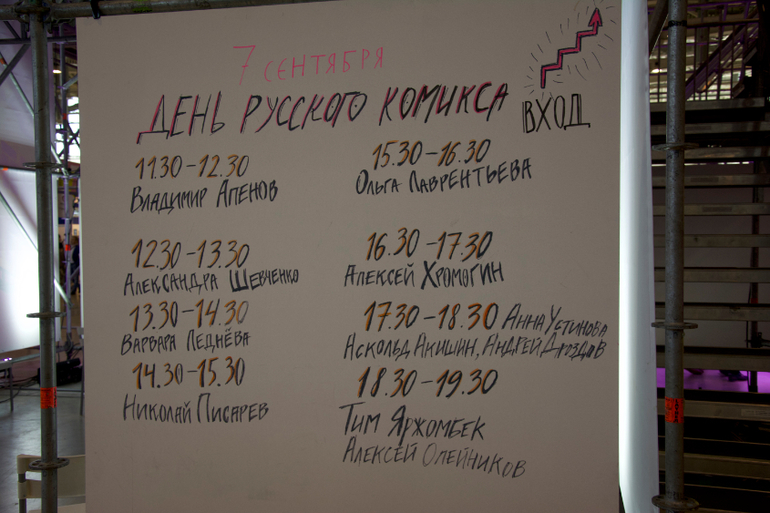 7 СЕНТЯБРЯ
ДЕНЬ РУССКОГО КОМИКСА
ВХОД
11.30-12.30
ВЛАДИМИР АПЕНОВ
12.30-13.30
АЛЕКСАНДРА ШЕВЧЕНКО
13.30-14.30
ВАРВАРА ЛЕДНЁВА
14.30-15.30
НИКОЛАЙ ПИСАРЕВ
15.30-16.30
ОЛЬГА ЛАВРЕНТЬЕВА
16.30-17.30
АЛЕКСЕЙ ХРОМОГИН
17.30-18.30 АННА УСТИНОВА
АСКОЛЬД АКИШИН, АНДРЕЙ ДРОЗДОВ
18.30-19.30
ТИМ ЯРЖОМБЕК
АЛЕКСЕЙ ОЛЕЙНИКОВ